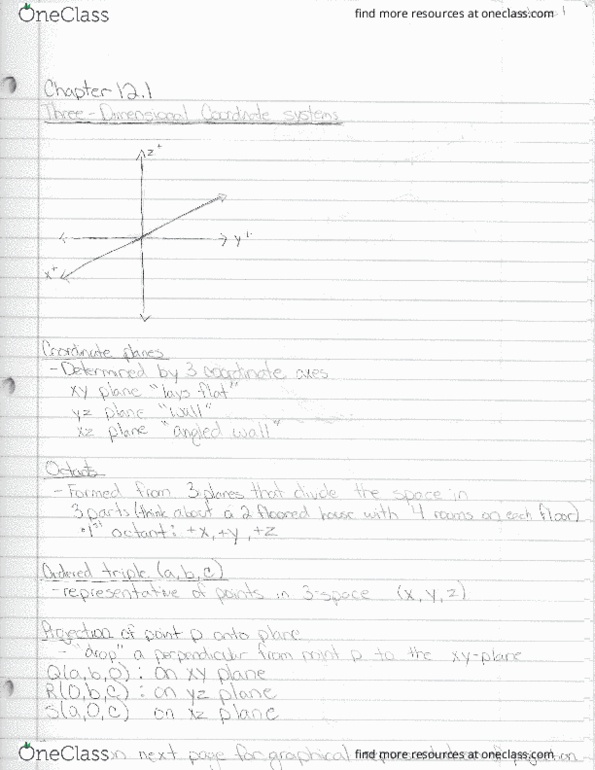 OneClass
find more resources at oneclass.com
1
Chapter 12.1
Three-Dimensional Coordinate systems
z+
y+
x+
Coordinate planes
- Determined by 3 coordinate axes
xy plane "lays flat"
yz plane "wall"
xz plane "angled wall"
Octants
- Formed from 3 planes that divide the space in
3 parts (think about a 2 floored house with 4 rooms on each floor)
• 1st octant: +x, +y, +z
Ordered triple (a, b, c)
- representative of points in 3-space (x, y, z)
Projection of point p onto plane
- "drop" a perpendicular from point p to the xy-plane
Q(a, b, 0) : on xy plane
R(0, b, c) : on yz plane
S(a, 0, c) on xz plane
OneClass
on next page for graphical
find more resources at oneclass.com